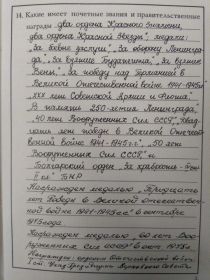 14. Какие имеет почетные звания и правительственные
награды два ордена Красного Знамени,
два ордена Красной Звезды, медали:
"За боевые заслуги", "За оборону Ленингра-
да", "За взятие Будапешта", "За взятие
Вены", "За победу над Германией в
Великой Отечественной войне 1941-1945гг"
"XXX лет Советской Армии и Флота",
"В память 250-летия Ленинграда",
"40 лет Вооруженных Сил СССР",
лет победы в Великой Отечест-
венной Войне 1941-1945г.г.", "50 лет
Вооруженных Сил СССР" и
Болгарский орден "За храбрость"
II ст." НРБ
Награжден медалью "Тридцать
лет Победы в Великой отечествен-
ной войне 1941-1945гг" в сентябре
1975 года
Награжден медалью "60 лет Воо-
руженных Сил СССР" в 1978г
Награжден орденом Отечественной войны